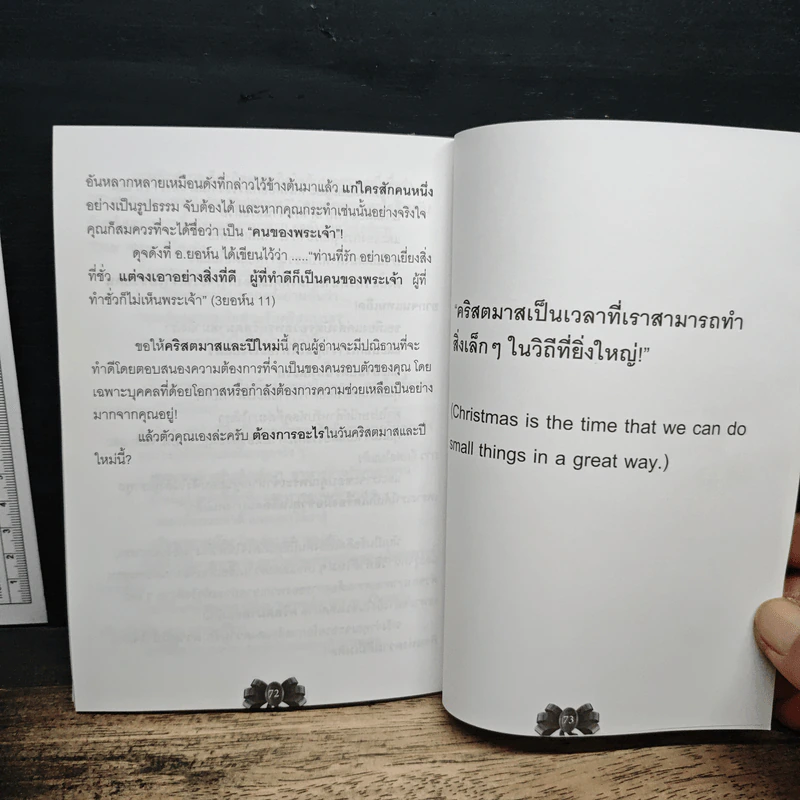 อันหลากหลายเหมือนดังที่กล่าวไว้ข้างต้นมาแล้ว แก่ใครสักคนหนึ่ง
อย่างเป็นรูปธรรม จับต้องได้ และหากคุณกระทำเช่นนั้นอย่างจริงใจ
คุณก็สมควรที่จะได้ชื่อว่า เป็น “คนของพระเจ้า”!
ดุจดังที่ อ.ยอห์น ได้เขียนไว้ว่า .....“ท่านที่รัก อย่าเอาเยี่ยงสิ่ง
ที่ชั่ว แต่จงเอาอย่างสิ่งที่ดี ผู้ที่ทำดีก็เป็นคนของพระเจ้า ผู้ที่
ทำชั่วก็ไม่เห็นพระเจ้า” (3ยอห์น 11)
ขอให้คริสตมาสและปีใหม่นี้ คุณผู้อ่านจะมีปณิธานที่จะ
ทำดีโดยตอบสนองความต้องการที่จำเป็นของคนรอบตัวของคุณ โดย
เฉพาะบุคคลที่ด้อยโอกาสหรือกำลังต้องการความช่วยเหลือเป็นอย่าง
มากจากคุณอยู่!
แล้วตัวคุณเองล่ะครับ ต้องการอะไรในวันคริสตมาสและปี
ใหม่นี้?
72
“คริสตมาสเป็นเวลาที่เราสามารถทำ
สิ่งเล็กๆ ในวิถีที่ยิ่งใหญ่!”
(Christmas is the time that we can do
small things in a great way.)
73